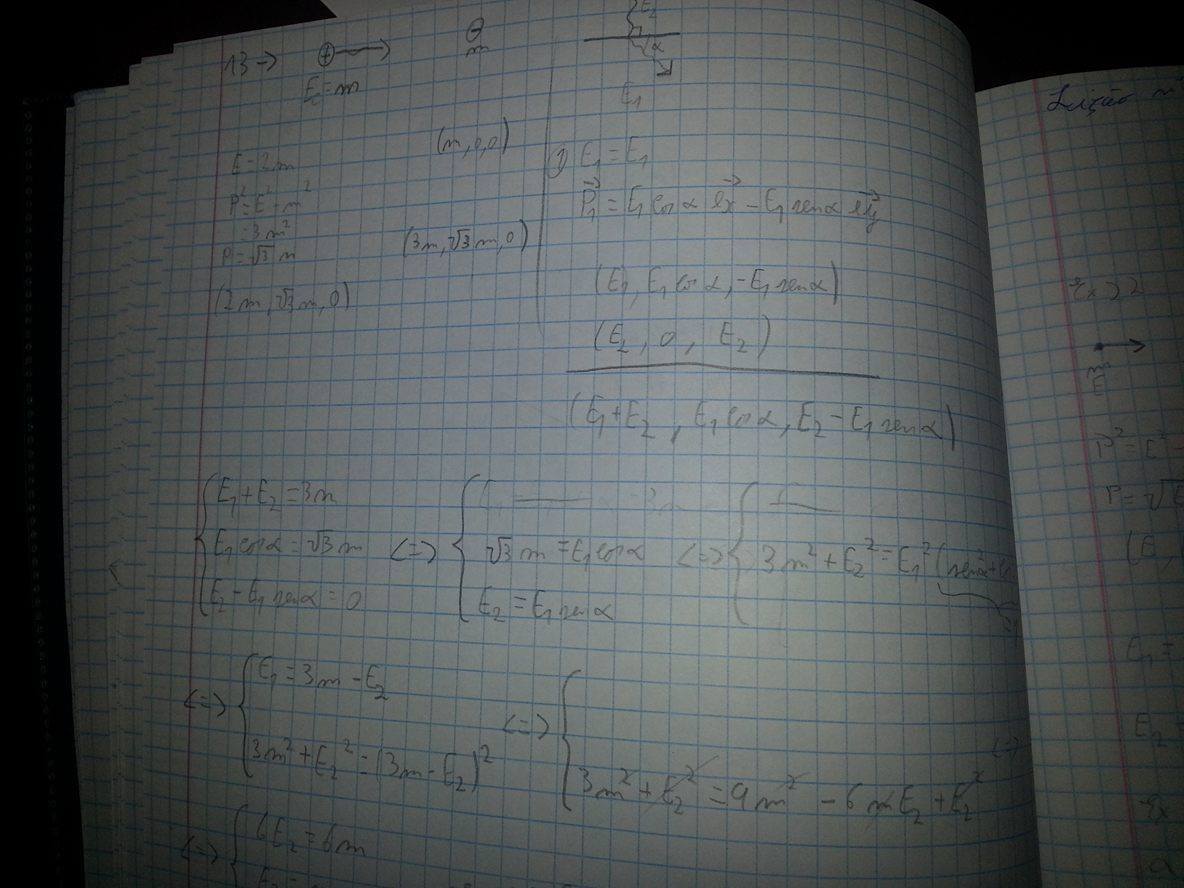 13 → ⊕→ ⊖
m
E_c = m
E_2
α
E_1
(m, 0, 0)
E = 2m
P² = E² - m²
= 3m²
P = √3 m
(3m, √3 m, 0)
(2m, √3 m, 0)
E_1 = E_1
P_1 = E_1 cos α e_x - E_1 sen α e_y
(E_1, E_1 cos α, -E_1 sen α)
(E_2, 0, E_2)
(E_1 + E_2, E_1 cos α, E_2 - E_1 sen α)
{ E_1 + E_2 = 3m
E_1 cos α = √3 m <=> { √3 m = E_1 cos α <=> { 3m² + E_2² = E_1² (sen²α +
E_2 - E_1 sen α = 0 E_2 = E_1 sen α
<=> { E_1 = 3m - E_2 <=> {
3m² + E_2² = (3m - E_2)² 3m² + E_2² = 9m² - 6mE_2 + E_2² <=>
<=> { 6E_2 = 6m
Lição n
m
E
P² = E² -
P = √E
(E,
E_1 =
E_2 =